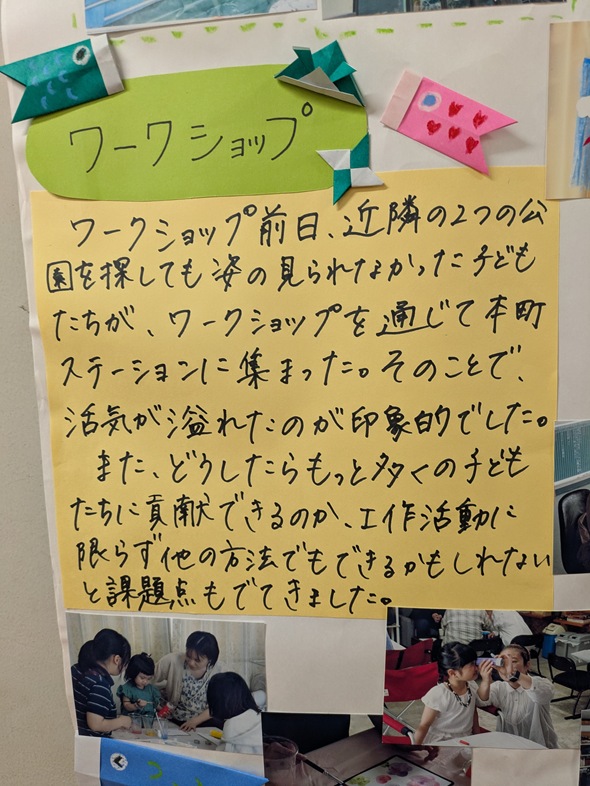 ワークショップ
ワークショップ前日、近隣の2つの公
園を探しても姿の見られなかった子ども
たちが、ワークショップを通じて本町
ステーションに集まった。そのことで、
活気が溢れたのが印象的でした。
また、どうしたらもっと多くの子ども
たちに貢献できるのか、工作活動に
限らず他の方法でもできるかもしれない
と課題点もでてきました。